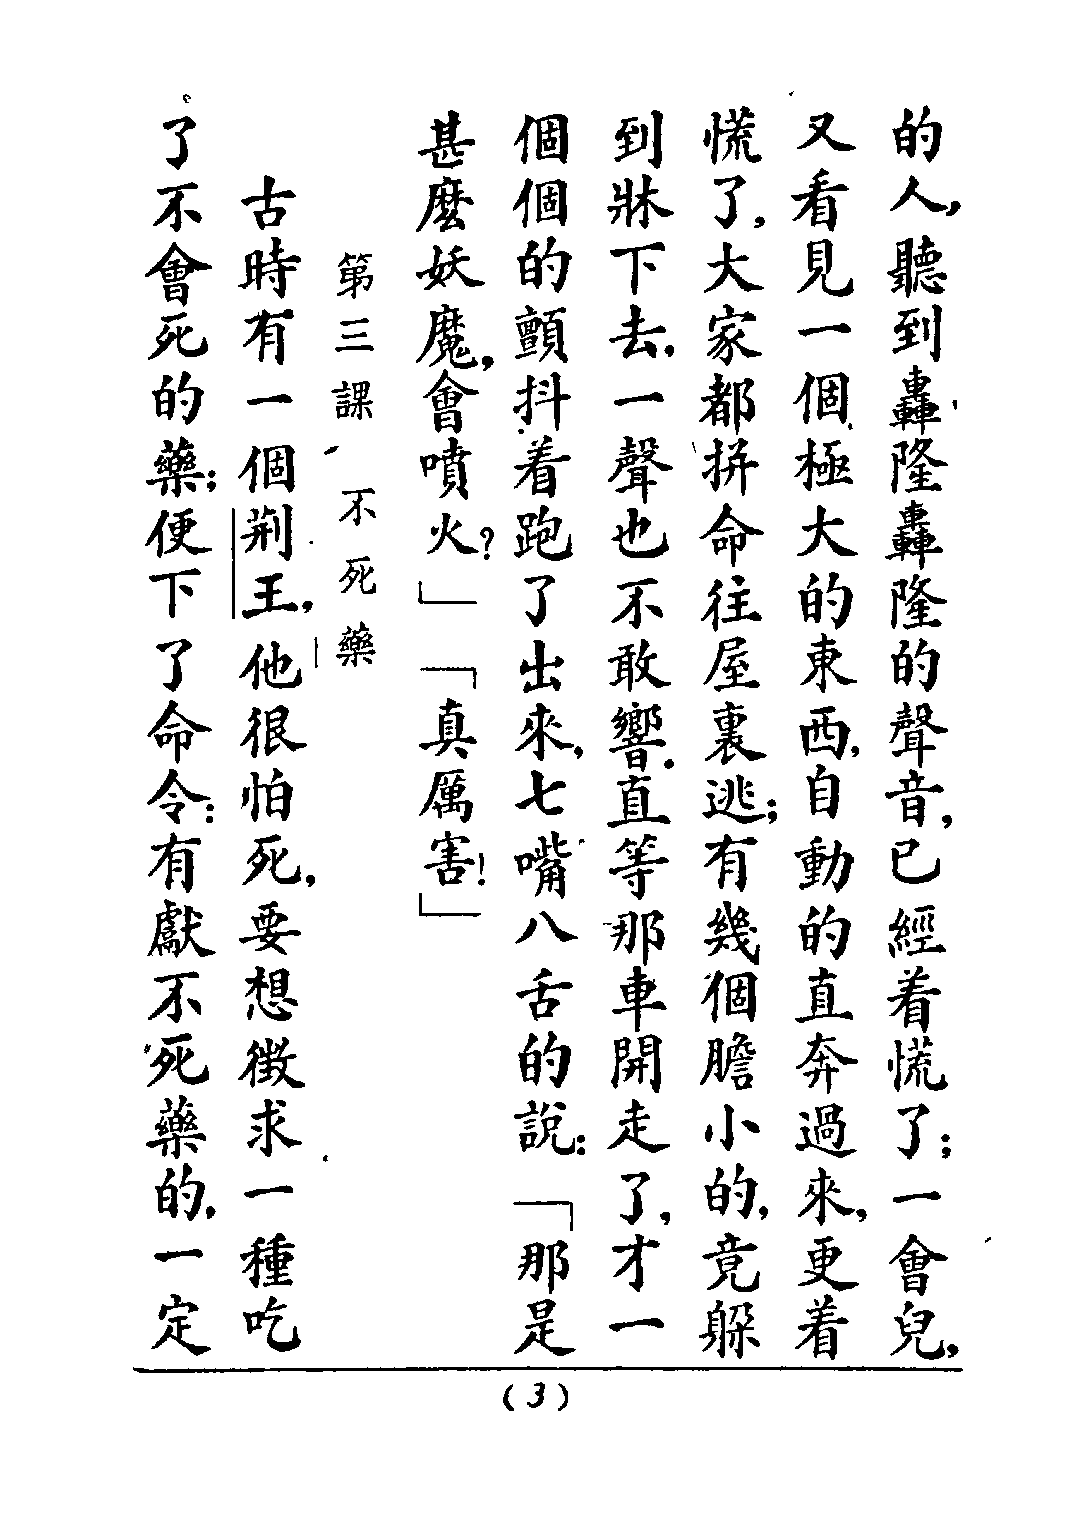 的人，聽到轟隆轟隆的聲音，已經着慌了；一會兒，
又看見一個極大的東西，自動的直奔過來，更着
慌了，大家都拚命往屋裏逃；有幾個膽小的，竟躲
到牀下去，一聲也不敢響．直等那車開走了，才一
個個的顫抖着跑了出來，七嘴八舌的說：「那是
甚麼妖魔，會噴火？」「真厲害！」
第三課　不死藥
古時有一個荆王，他很怕死，要想徵求一種吃
了不會死的藥；便下了命令：有獻不死藥的，一定
(3)